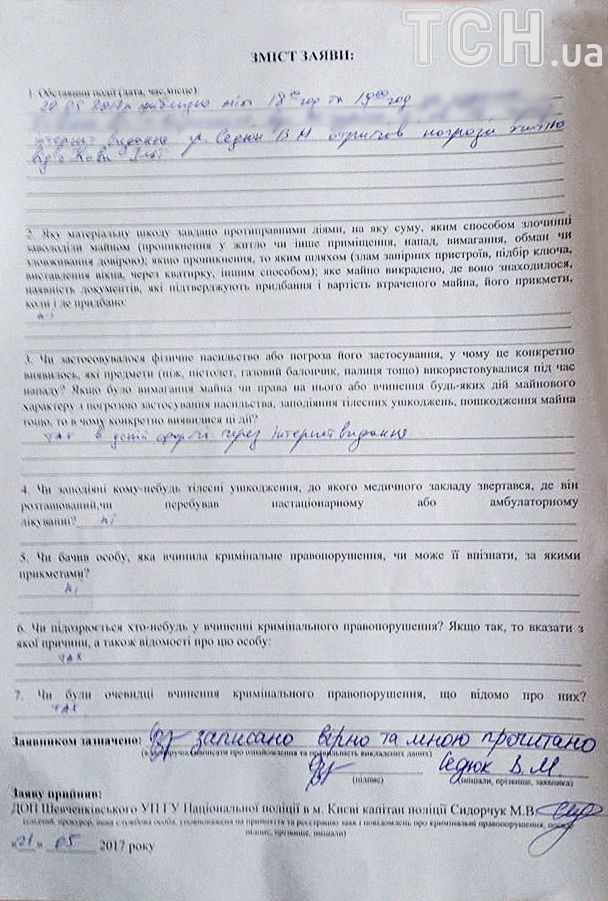 ТСН.ua
ЗМІСТ ЗАЯВИ:
1. Обставини події (дата, час, місце)
20 05 2017р приблизно між 18⁰⁰ год та 19⁰⁰ год
інтернет видання гр. Седюк В М отримав погрози життю
від
2. Яку матеріальну шкоду завдано протиправними діями, на яку суму, яким способом злочинці
заволоділи майном (проникнення у житло чи інше приміщення, напад, вимагання, обман чи
зловживання довірою); якщо проникнення, то яким шляхом (злам запірних пристроїв, підбір ключа,
виставлення вікна, через кватирку, іншим способом); яке майно викрадено, де воно знаходилося,
наявність документів, які підтверджують придбання і вартість втраченого майна, його прикмети,
коли і де придбано:
Ні
3. Чи застосовувалося фізичне насильство або погроза його застосування, у чому це конкретно
виявилось, які предмети (ніж, пістолет, газовий балончик, палиця тощо) використовувалися під час
нападу? Якщо було вимагання майна чи права на нього або вчинення будь-яких дій майнового
характеру з погрозою застосування насильства, заподіяння тілесних ушкоджень, пошкодження майна
тощо, то в чому конкретно виявилися ці дії?
так в усній формі через інтернет видання
4. Чи заподіяні кому-небудь тілесні ушкодження, до якого медичного закладу звертався, де він
розташований,чи перебував на стаціонарному або амбулаторному
лікуванні? Ні
5. Чи бачив особу, яка вчинила кримінальне правопорушення, чи може її впізнати, за якими
прикметами?
Ні
6. Чи підозрюється хто-небудь у вчиненні кримінального правопорушення? Якщо так, то вказати з
якої причини, а також відомості про цю особу:
так
7. Чи були очевидці вчинення кримінального правопорушення, що відомо про них?
так
Заявником зазначено: записано вірно та мною прочитано
(власноручно написати про ознайомлення та правильність викладених даних)
Седюк В.М
(підпис) (ініціали, прізвище, заявника)
Заяву прийняв:
ДОП Шевченківського УП ГУ Національної поліції в м. Києві капітан поліції Сидорчук М.В.
(слідчий, прокурор, інша службова особа, уповноважена на прийняття та реєстрацію заяв і повідомлень про кримінальні правопорушення, посада,
підпис, прізвище, ініціали)
«21» 05 2017 року